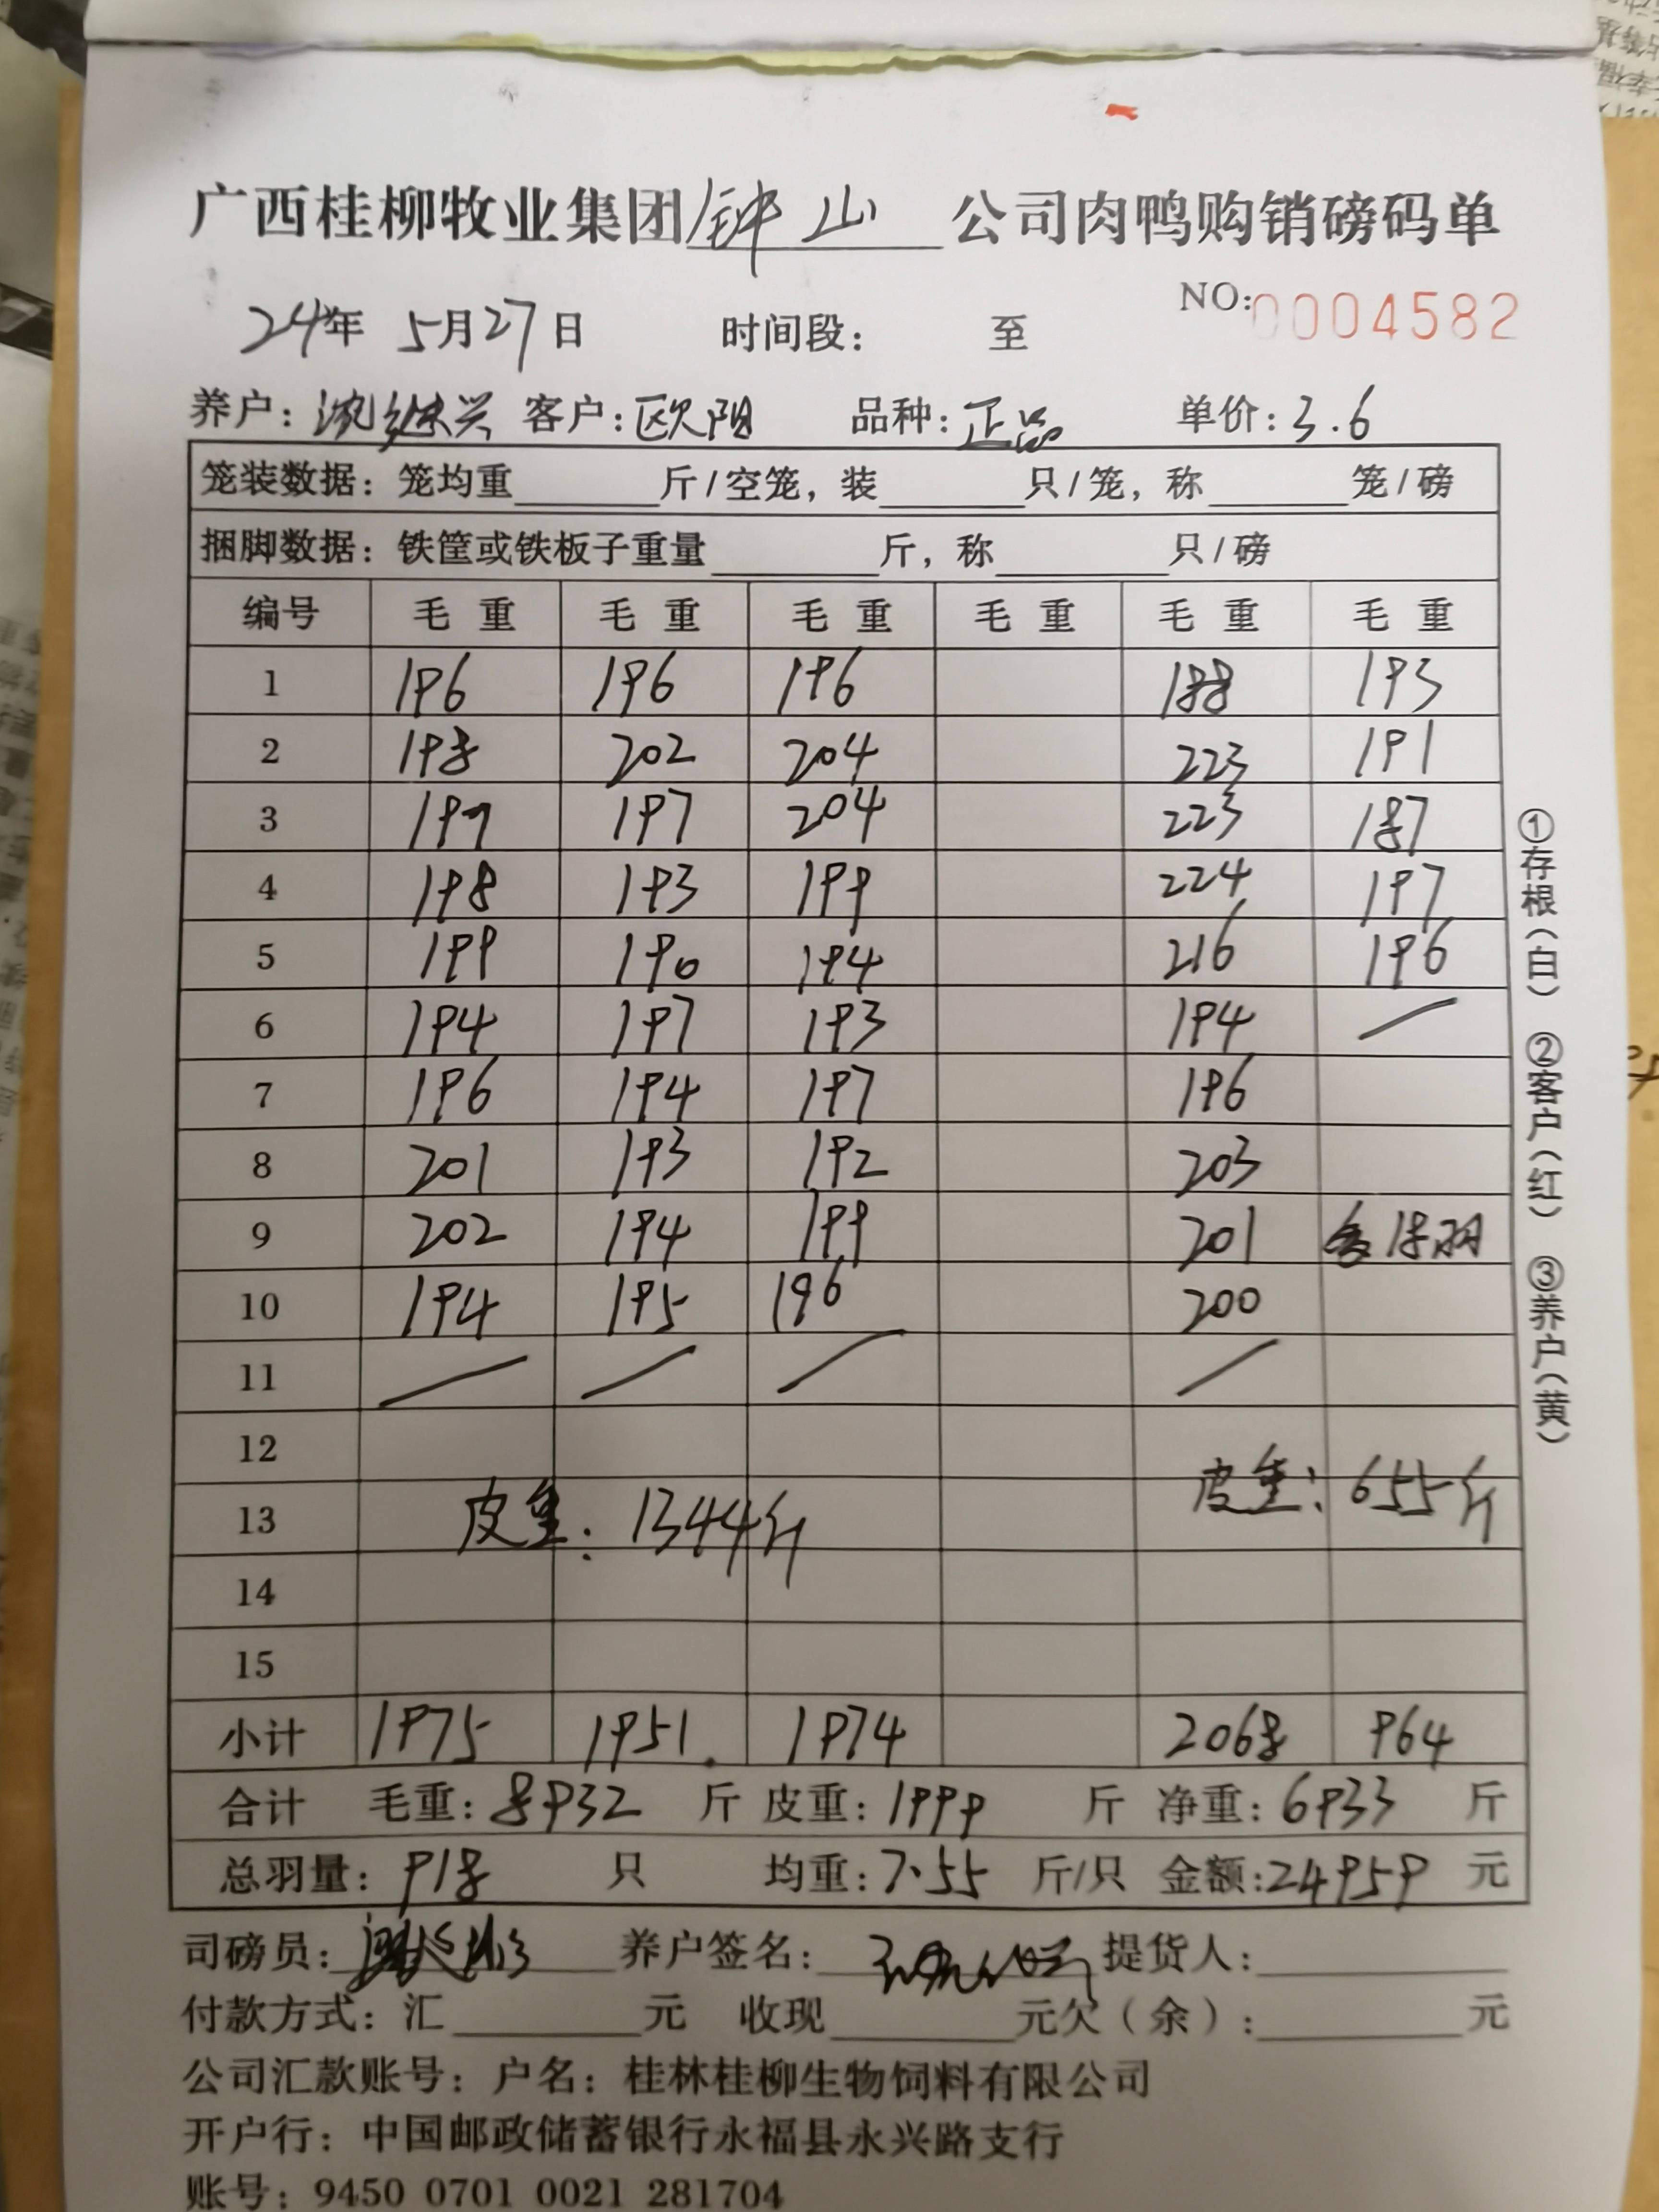 广西桂柳牧业集团钟山公司肉鸭购销磅码单
NO:0004582
24年 5月27日 时间段: 至
养户: 沈继兴 客户:欧阳 品种:正品 单价:3.6
笼装数据: 笼均重______斤/空笼, 装______只/笼, 称______笼/磅
捆脚数据: 铁筐或铁板子重量______斤, 称______只/磅
编号 毛重 毛重 毛重 毛重 毛重 毛重
1 196 196 196 188 193
2 198 202 204 223 191
3 197 197 204 223 187
4 198 193 199 224 197
5 199 190 194 216 196
6 194 197 193 194 /
7 196 194 197 196
8 201 193 192 203
9 202 194 199 201
10 194 195 196 200
11 / / / /
12
13 皮重: 1344斤 皮重: 655斤
14
15
小计 1975 1951. 1974 2068 964
合计 毛重: 8932 斤 皮重: 1999 斤 净重: 6933 斤
总羽量: 918 只 均重: 7.55 斤/只 金额:24959 元
司磅员: 养户签名: 提货人:
付款方式: 汇______元 收现______元欠(余):______元
公司汇款账号: 户名: 桂林桂柳生物饲料有限公司
开户行: 中国邮政储蓄银行永福县永兴路支行
账号: 9450 0701 0021 281704
①存根(白) ②客户(红) ③养户(黄)